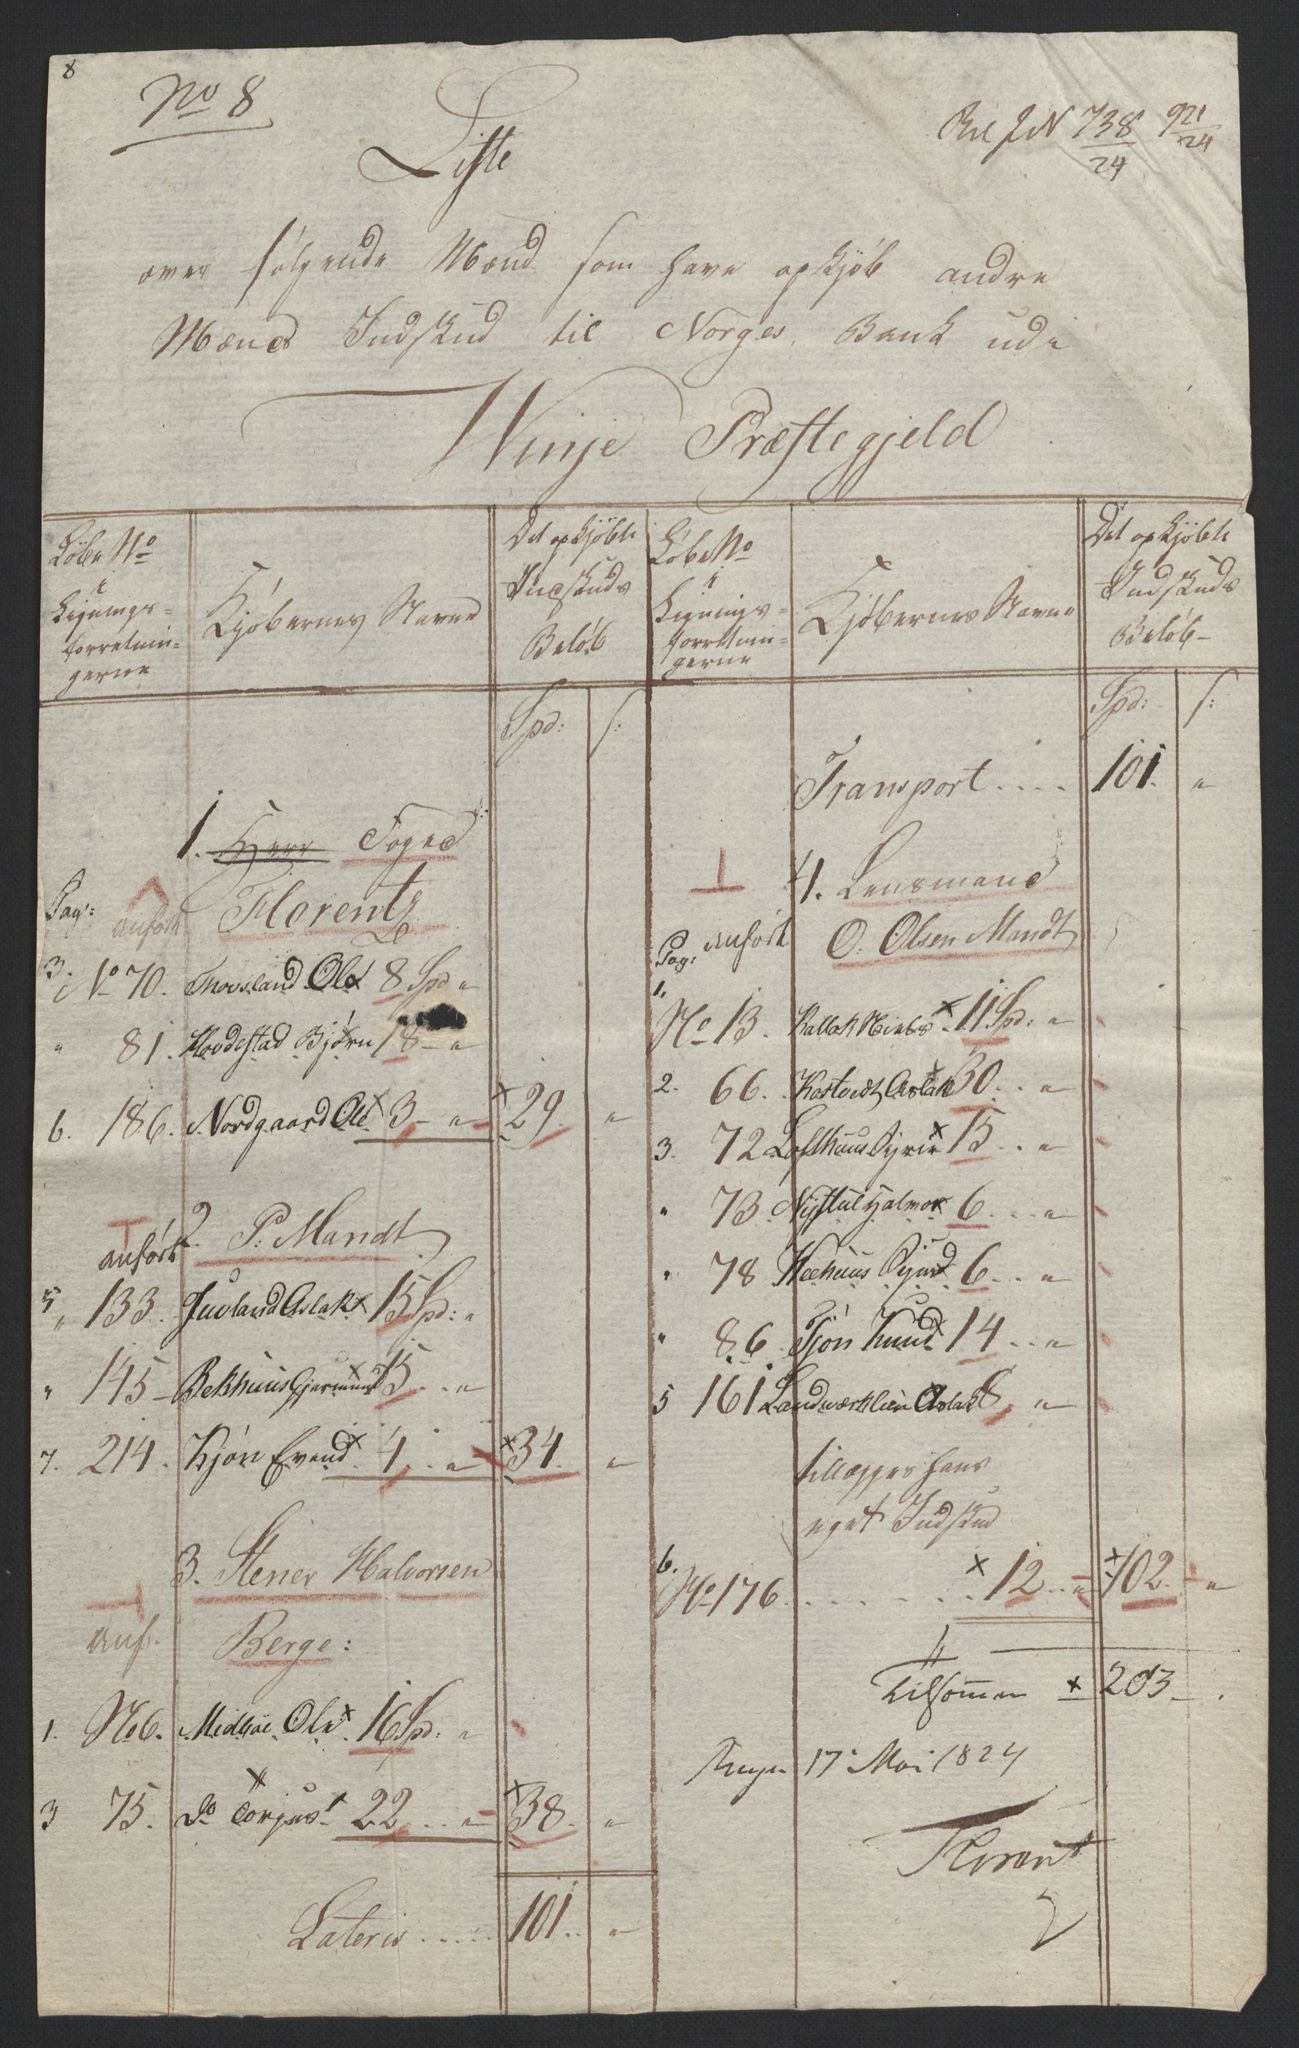 8
No 8
Bil J N 738/24 921/24
Liste
over følgende Mænd som have opkjøb andre
Mænds Indskud til Norges Bank udi
Winje Præstegjeld
Løbe No
i
Lignings-
forretnin-
gerne
Kjøbernes Navne
Det opkjøbte
Indskuds
Beløb
Spd: s:
1. Herr Foged
Florentz
Pag: anført
3. No 70. Ole 8 Spd "
" 81. Hovdestad Bjørn 18 - "
6. 186. Nordgaard Ole x 3 - " x 29. "
2. P. Mandt
anført
5 " 133. Juvland Aslak x 15 Spd: "
" 145 - Bekhuus Gjermund 15 . . "
7. 214. Kjøn Evend x 4 . . " x 34. "
3. Stener Halvorsen
anf. Berge:
1. No 6. Midbøe Ole x 16 Spd. "
3 75. Do Torjus x 22 . . " x 38. "
Lateris . . . . . 101. . "
Løbe No
i
Lignings-
forretnin-
gerne
Kjøbernes Navne
Det opkjøbte
Indskuds
Beløb -
Spd: s:
Transport . . . . 101. "
4. Lensmand
O. Olsen Mandt
Pag: anført
1.
No 13. x 11 Spd: "
2. 66. Aslak x 30 . . "
3. 72 Lofthuus x 15 . . . "
" 73. Nystul Hjalmor x 6 . . . "
" 78 6 . . . "
" 86. Tjøn Knud 14 . . "
5 161 Landværklien Aslak 8, "
tillægges hans
eget Indskud
6.
No 176. . . . . . . . x 12 . . " x 102. "
tilsammen x 203 - .
17 Mai 1824
Florentz